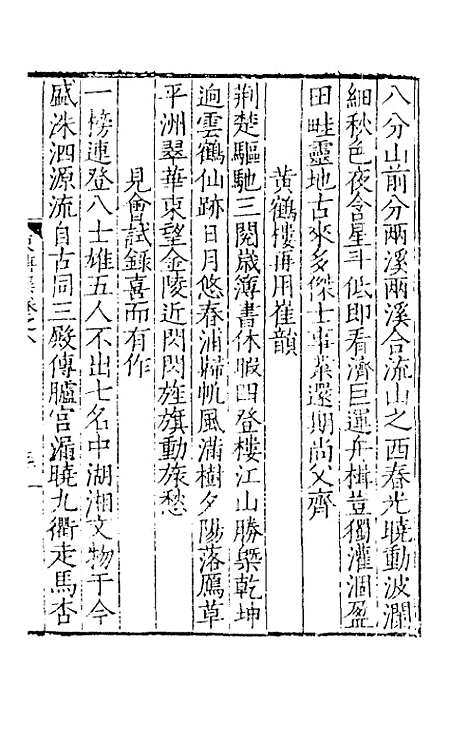 八分山前分兩溪兩溪合流山之西春光曉動波瀾
細秋色夜含星斗低即看濟巨運舟楫豈獨灌涸盈
田畦靈地古來多傑士事業還期尚父齊
黄鶴樓再用崔韻
荆楚驅馳三閱歳簿書休暇四登樓江山勝槩乾坤
逈雲鶴仙跡日月悠春浦歸帆風滿樹夕陽落鴈草
平洲翠華東望金陵近閃閃旌旗動旅愁
見會試錄喜而有作
一榜連登八士雄五人不出七名中湖湘文物于今
盛洙泗源流自古同三殿傳臚宫漏曉九衢走馬杏